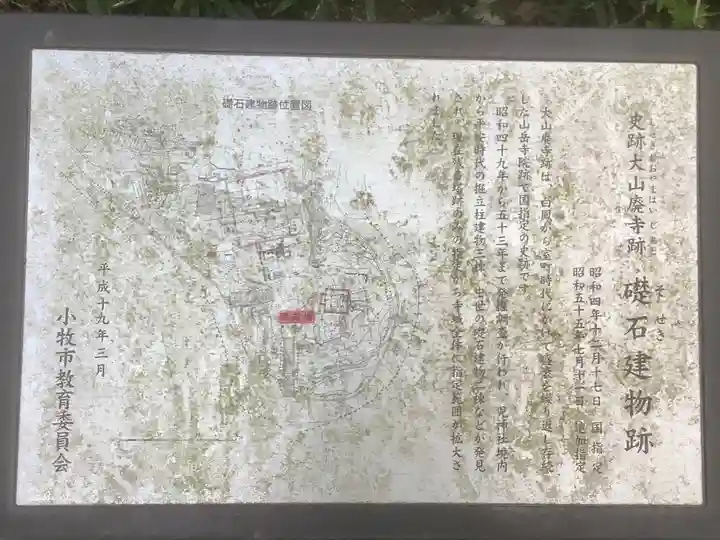 しせきおおやまはいじあと
史跡大山廃寺跡
そせき
礎石建物跡
昭和四年十二月十七日 国指定
昭和五十五年七月十一日 追加指定
大山廃寺跡は、白鳳から室町時代にかけて盛衰を繰り返し存続
した山岳寺院跡で国指定の史跡です。
昭和四十九年から五十三年まで発掘調査が行われ、児神社境内
から平安時代の掘立柱建物三棟、中世の礎石建物二棟などが発見
され、現在残る塔跡のみの指定から寺域全体に指定範囲が拡大さ
れました。
礎石建物跡位置図
現在地
平成十九年三月
小牧市教育委員会